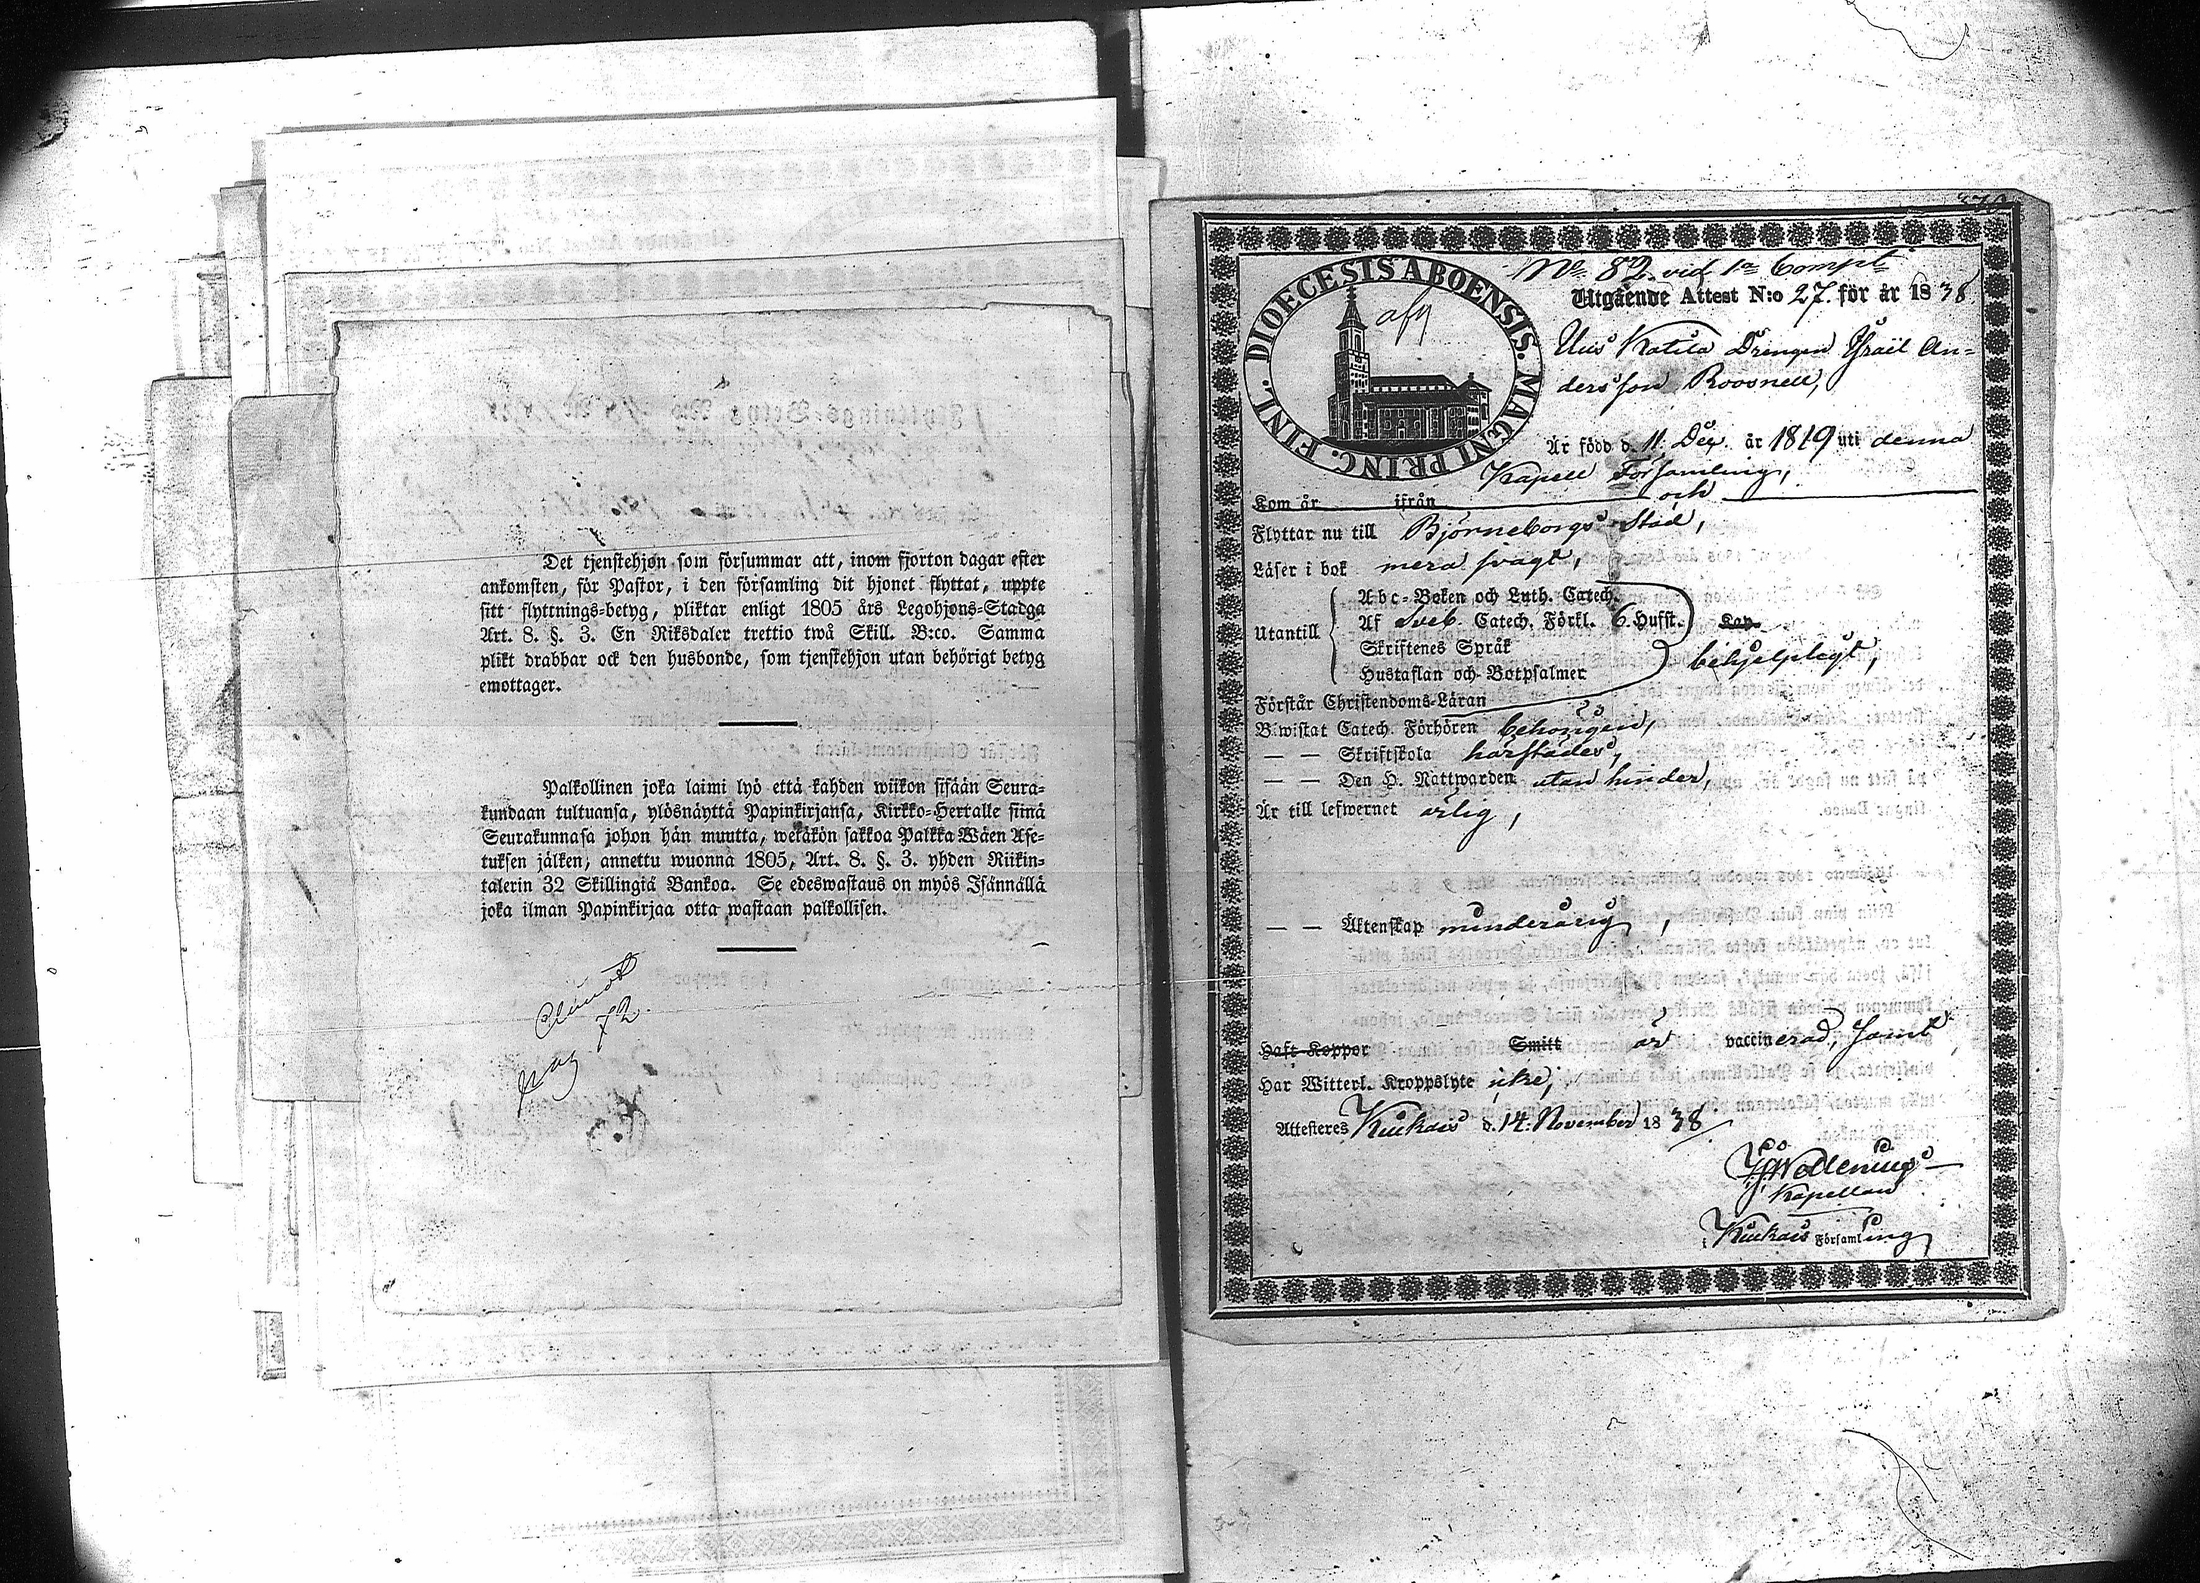 Det tjenstehjon som försummar att, inom fjorton dagar efter
ankomsten, för Pastor, i den församling dit hjonet flyttat, uppte
sitt flyttnings-betyg, pliktar enligt 1805 års Legohjons-Stadga
Art. 8. §. 3. En Riksdaler trettio twå Skill. B:co. Samma
plikt drabbar ock den husbonde, som tjenstehjon utan behörigt betyg
emottager.
Palkollinen joka laimi lyö että kahden wiikon sisään Seura-
kundaan tultuansa, ylösnäyttä Papinkirjansa, Kirkko-Herralle siinä
Seurakunnasa johon hän muutta, wetäkön sakkoa Palkka Wäen Ase-
tuksen jälken, annettu wuonna 1805, Art. 8. §. 3. yhden Riikin-
talerin 32 Skillingiä Bankoa. Se edeswastaus on myös Isännällä
joka ilman Papinkirjaa otta wastaan palkollisen.
72
DIOECESIS ABOENSIS. MAGNI PRINC. FINL.
afg
No. 82. vid 1a Compt
Utgående Attest N:o 27. för år 1838
Drengen Israël An=
dersson Roosnell,
Är född d. 11. Dec. år 1819 uti denna
Kapell Församling,
Kom år ifrån och
Flyttar nu till Björneborgs Stad,
Läser i bok mera svagt,
Utantill
Abc-Boken och Luth. Catech.
Af Sveb. Catech. Förkl. 6. Hufst. Kap.
Skriftenes Språk
Hustaflan och Botpsalmer
behjelpligt,
Förstår Christendoms-Läran
Biwistat Catech. Förhören behörigen,
— — Skriftskola härstädes,
— — Den H. Nattwarden utan hinder,
Är till lefwernet ärlig,
— — Äktenskap minderårig,
Haft Koppor Smitt är vaccinerad, samt
Har Witterl. Kroppslyte icke,
Attesteres Kiukais d. 14. November 1838
Kapellan
i Kiukais Församling